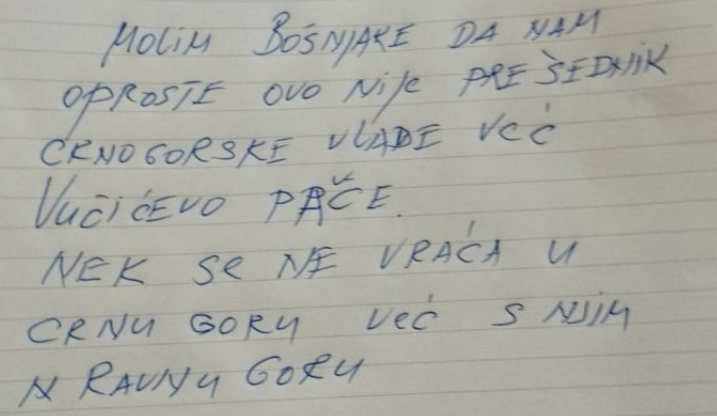 MOLIM BOŠNJAKE DA NAM
OPROSTE OVO NIJE PREŠEDNIK
CRNOGORSKE VLADE VEĆ
VUČIĆEVO PAČE.
NEK SE NE VRAĆA U
CRNU GORU VEĆ S NJIM
N RAVNU GORU